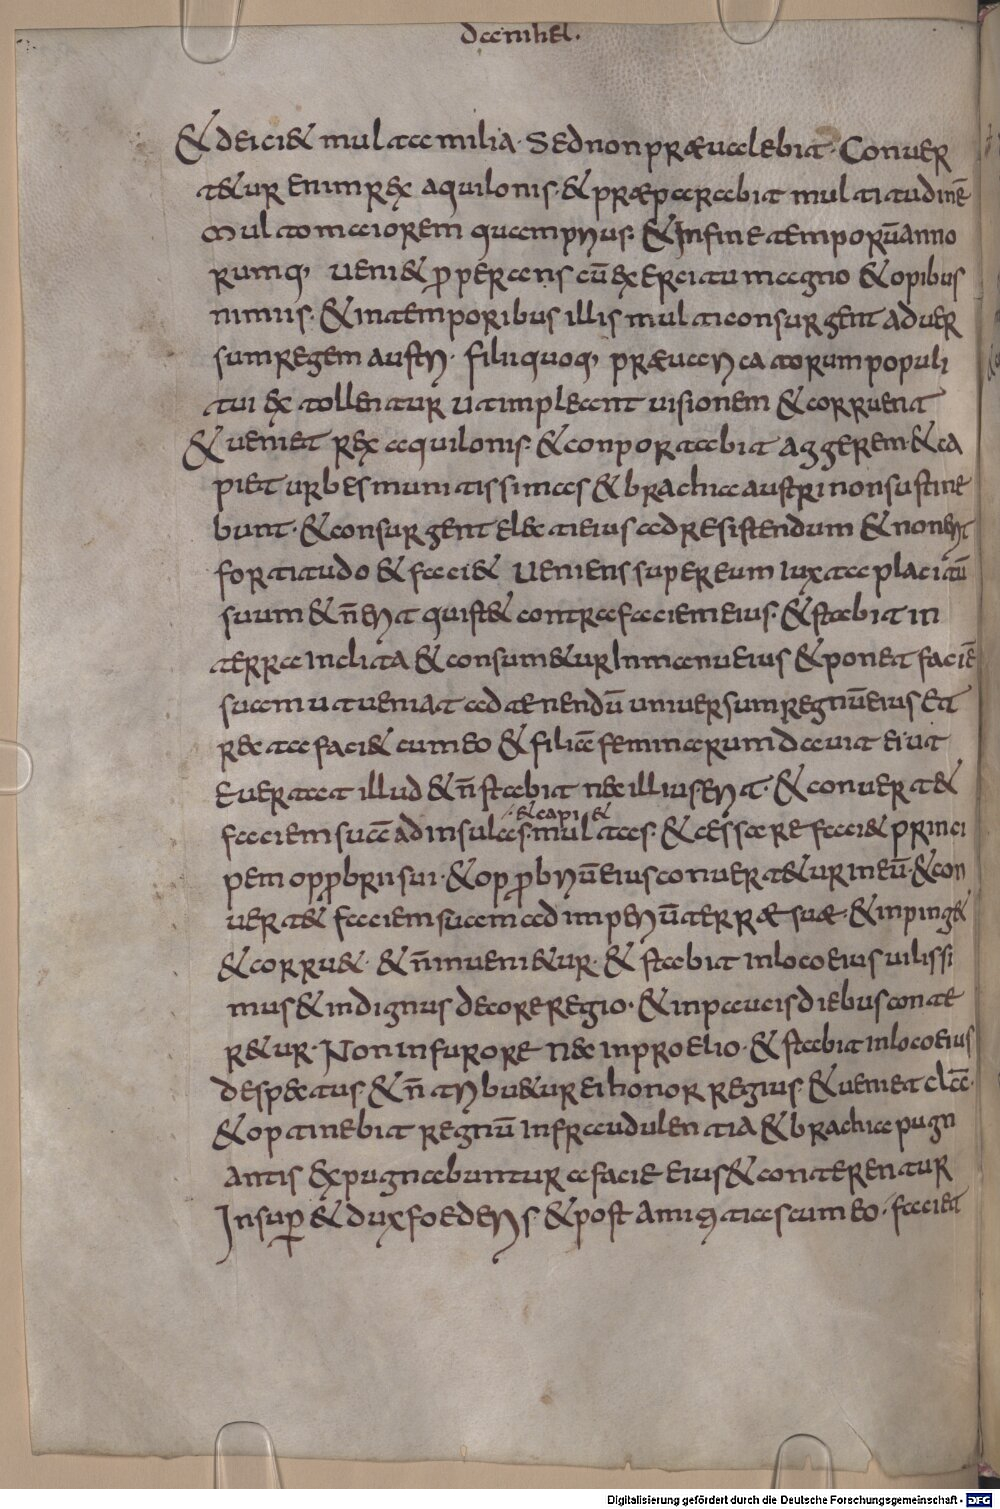 danihel.
& deici& multa milia· Sed non prævalebit· Conver
t&ur enim rex aquilonis· & præparabit multitudinē
multo maiorem quam prius· & In fine temporū anno
rumq, veni& ꝓperans cū exercitu magno & opibus
nimiis· & in temporibus illis multi consurgent adver
sum regem austri· filii quoq, prævaricatorum populi
tui extollentur ut impleant visionem & corruent
& veniet rex aquilonis· & conportabit aggerem· & ca
piet urbes munitissimas & brachia austri non sustine
bunt· & consurgent electi eius ad resistendum & non erit
fortitudo & faci& veniens super eum iuxta placitū
suum & n̄ erit qui st& contra faciem eius· & stabit in
terra inclita & consum&ur In manu eius & ponet faciē
suam ut veniat ad tenendū universum regnū eius Et
recta faci& cum eo & filiā feminarum davit ei ut
evertat illud & n̄ stabit nec illius erit· & convert&
faciem suā ad insulas· & capi& multas· & cessare faci& princi
pem opꝓbrii sui· & opꝓbriū eius convert&ur in eū· & con
vert& faciem suam ad imperiū terræ suæ· & inping&
& corru&· & n̄ inveni&ur· & stabit in loco eius vilissi
mus & indignus decore regio· & in paucis diebus conte
r&ur· Non in furore nec in proelio· & stabit in loco eius
despectus· & n̄ tribu&ur ei honor regius· & veniet clā·
& optinebit regnū In fraudulentia & brachia pugn
antis expugnabuntur a facie eius & conterentur
Insuꝑ & dux foederis· & post amicitias cum eo· faciet
Digitalisierung gefördert durch die Deutsche Forschungsgemeinschaft - DFG